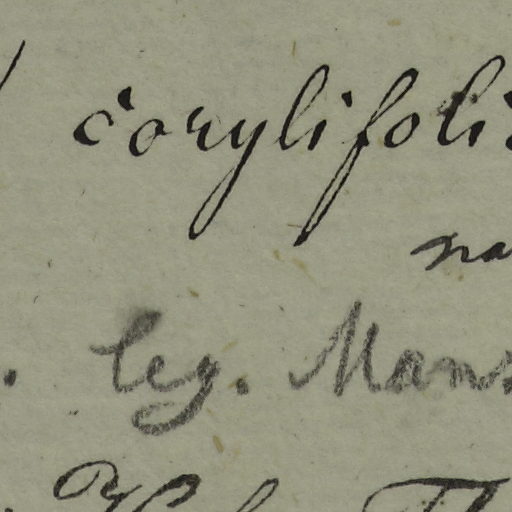 corylifoli
na
leg. Mans